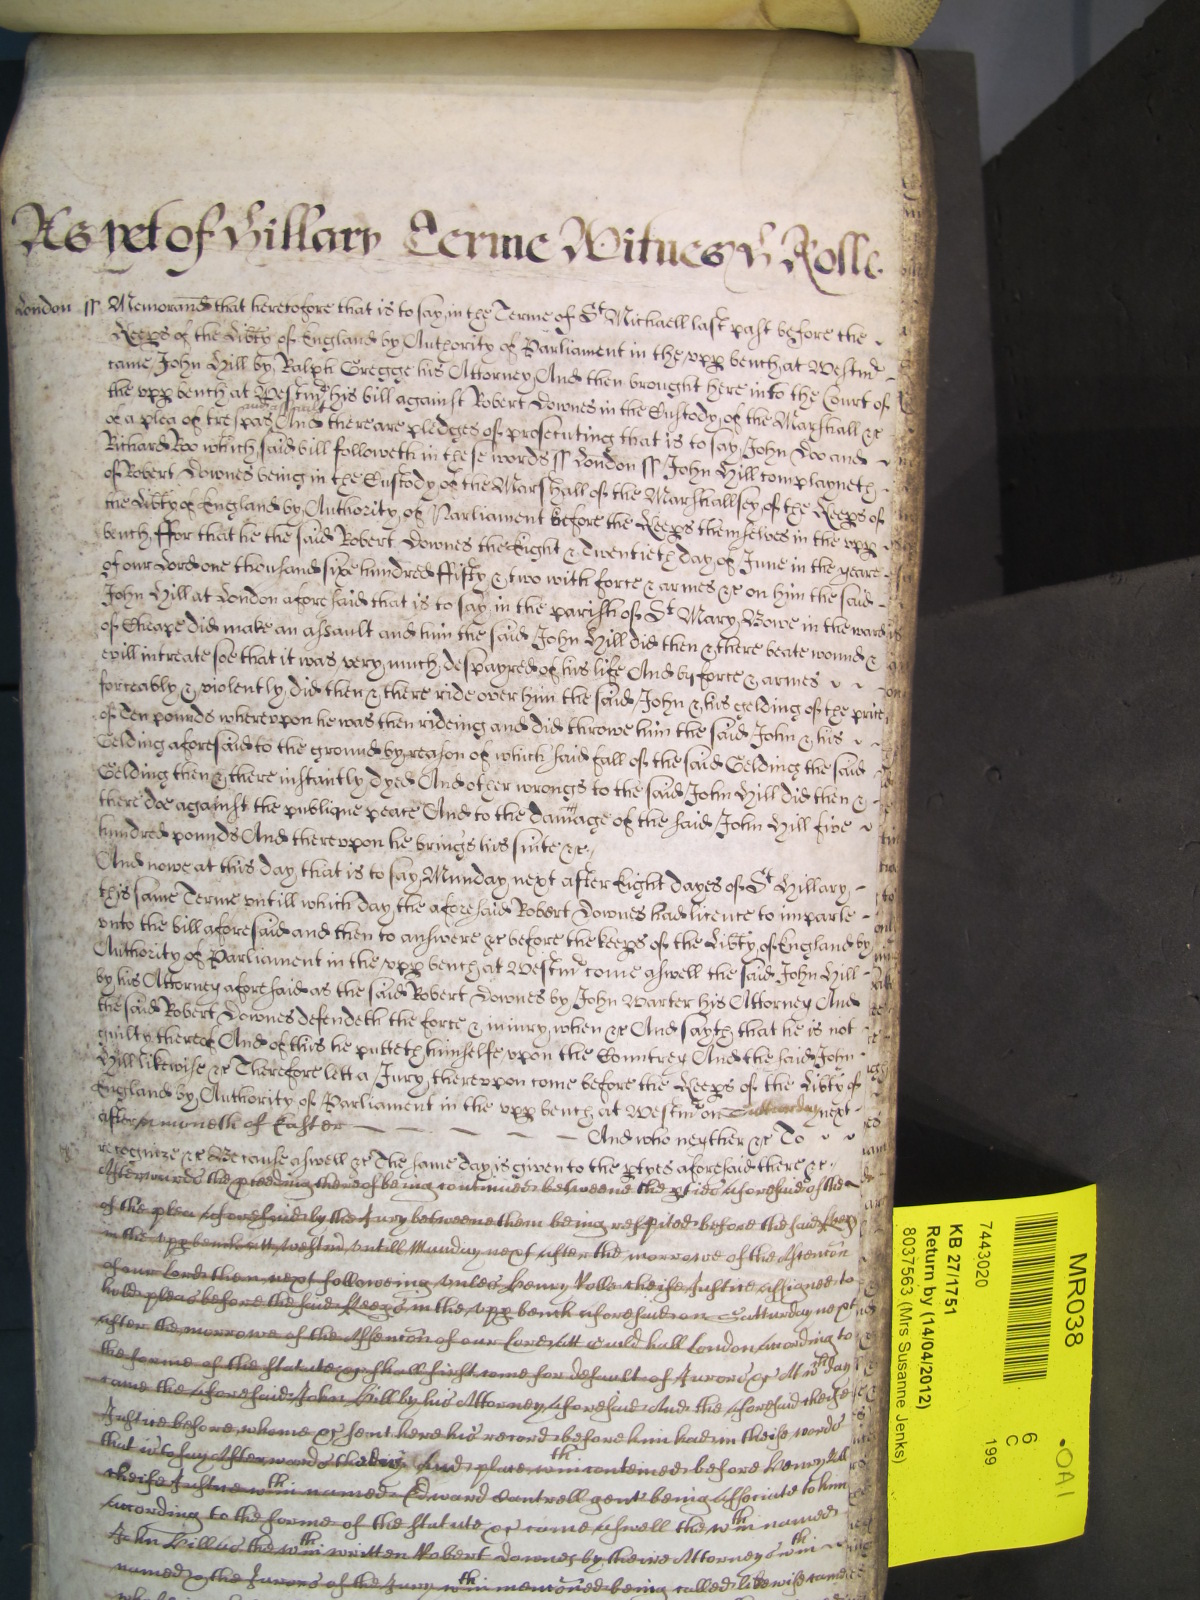 As yet of Hillary Terme Witnes H Rolle
London ss Memorand that heretofore that is to say in the Terme of St Michaell last past before the
Keeps of the Libty of England by Authority of Parliament in the upp bench at Westmr
came John Hill by Ralph Gregge his Attorney And then brought here into the Court of
the upp bench at Westmr his bill against Robert Downes in the Custody of the Marshall &c
of a plea of trespas and assault And there are pledges of prosecuting that is to say John Doo and
Richard Roo which said bill followeth in these words ss London ss John Hill complayneth
of Robert Downes being in the Custody of the Marshall of the Marshallsey of the Keeps of
the Libty of England by Authority of Parliament before the Keeps themselves in the upp
bench ffor that he the said Robert Downes the Eight & Twentieth day of June in the yeare
of our Lord one thousand sixe hundred ffifty & two with force & armes &c on him the said
John Hill at London aforesaid that is to say in the parish of St Mary Bowe in the ward
of Cheape did make an assault and him the said John Hill did then & there beate wound &
evill intreate soe that it was very much despayred of his life And by force & armes
forceably & violently did then & there ride over him the said John & his gelding of the price
of Ten pounds whereupon he was then rideing and did throwe him the said John & his
Gelding aforesaid to the ground by reason of which said fall of the said Gelding the said
Gelding then & there instantly dyed And other wrongs to the said John Hill did then &
there doe against the publique peace And to the damage of the said John Hill five
hundred pounds And thereupon he brings his suite &c
And nowe at this day that is to say Munday next after Eight dayes of St Hillary
this same Terme untill which day the aforesaid Robert Downes had licence to imparle
unto the bill aforesaid and then to answere &c before the keeps of the Libty of England by
Authority of Parliament in the upp bench at Westmr come aswell the said John Hill
by his Attorney aforesaid as the said Robert Downes by John Warter his Attorney And
the said Robert Downes defendeth the force & iniury when &c And sayth that he is not
guilty thereof And of this he putteth himselfe upon the Countrey And the said John
Hill likewise &c Therefore lett a Jury thereupon come before the Keeps of the Libty of
England by Authority of Parliament in the upp bench at Westmr on Satturday next
after a moneth of Easter And who neyther &c To
recognize &c Because aswell &c The same day is given to the ptyes aforesaid there &c
Afterwards the pceeding thereof being continued betweene the pties aforesaid of the
of the plea aforesaid by the Jury betweene them being respited before the said Keeps
in the upp bench att Westmr untill Munday next after the morrowe of the Ascencon
of our Lord then next followeing unles Henry Rolle cheife Justice assigned to
hold pleas before the said Keeps in the upp bench aforesaid on Satturday next
after the morrowe of the Ascencon of our Lord att Guild hall London according to
the forme of the statute &c shall first come for default of Jurors &c Att wch day
came the aforesaid John Hill by his Attorney aforesaid And the aforesaid cheife
Justice before whome &c sent here his record before him had in theise words
that is to say Afterwards the day And place wthin conteined before Henry Rolle
cheife Justice wthin named Edward Cantrell gent being Associate to him
according to the forme of the statute &c came aswell the wthin named
John Hill as the wthin written Robert Downes by theire Attorneys wthin
named & the Jurors of the Jury wthin menconed being called likewise came
MR038
7443020
KB 27/1751
Return by (14/04/2012)
8037563 (Mrs Susanne Jenks)
6
C
199
OA1